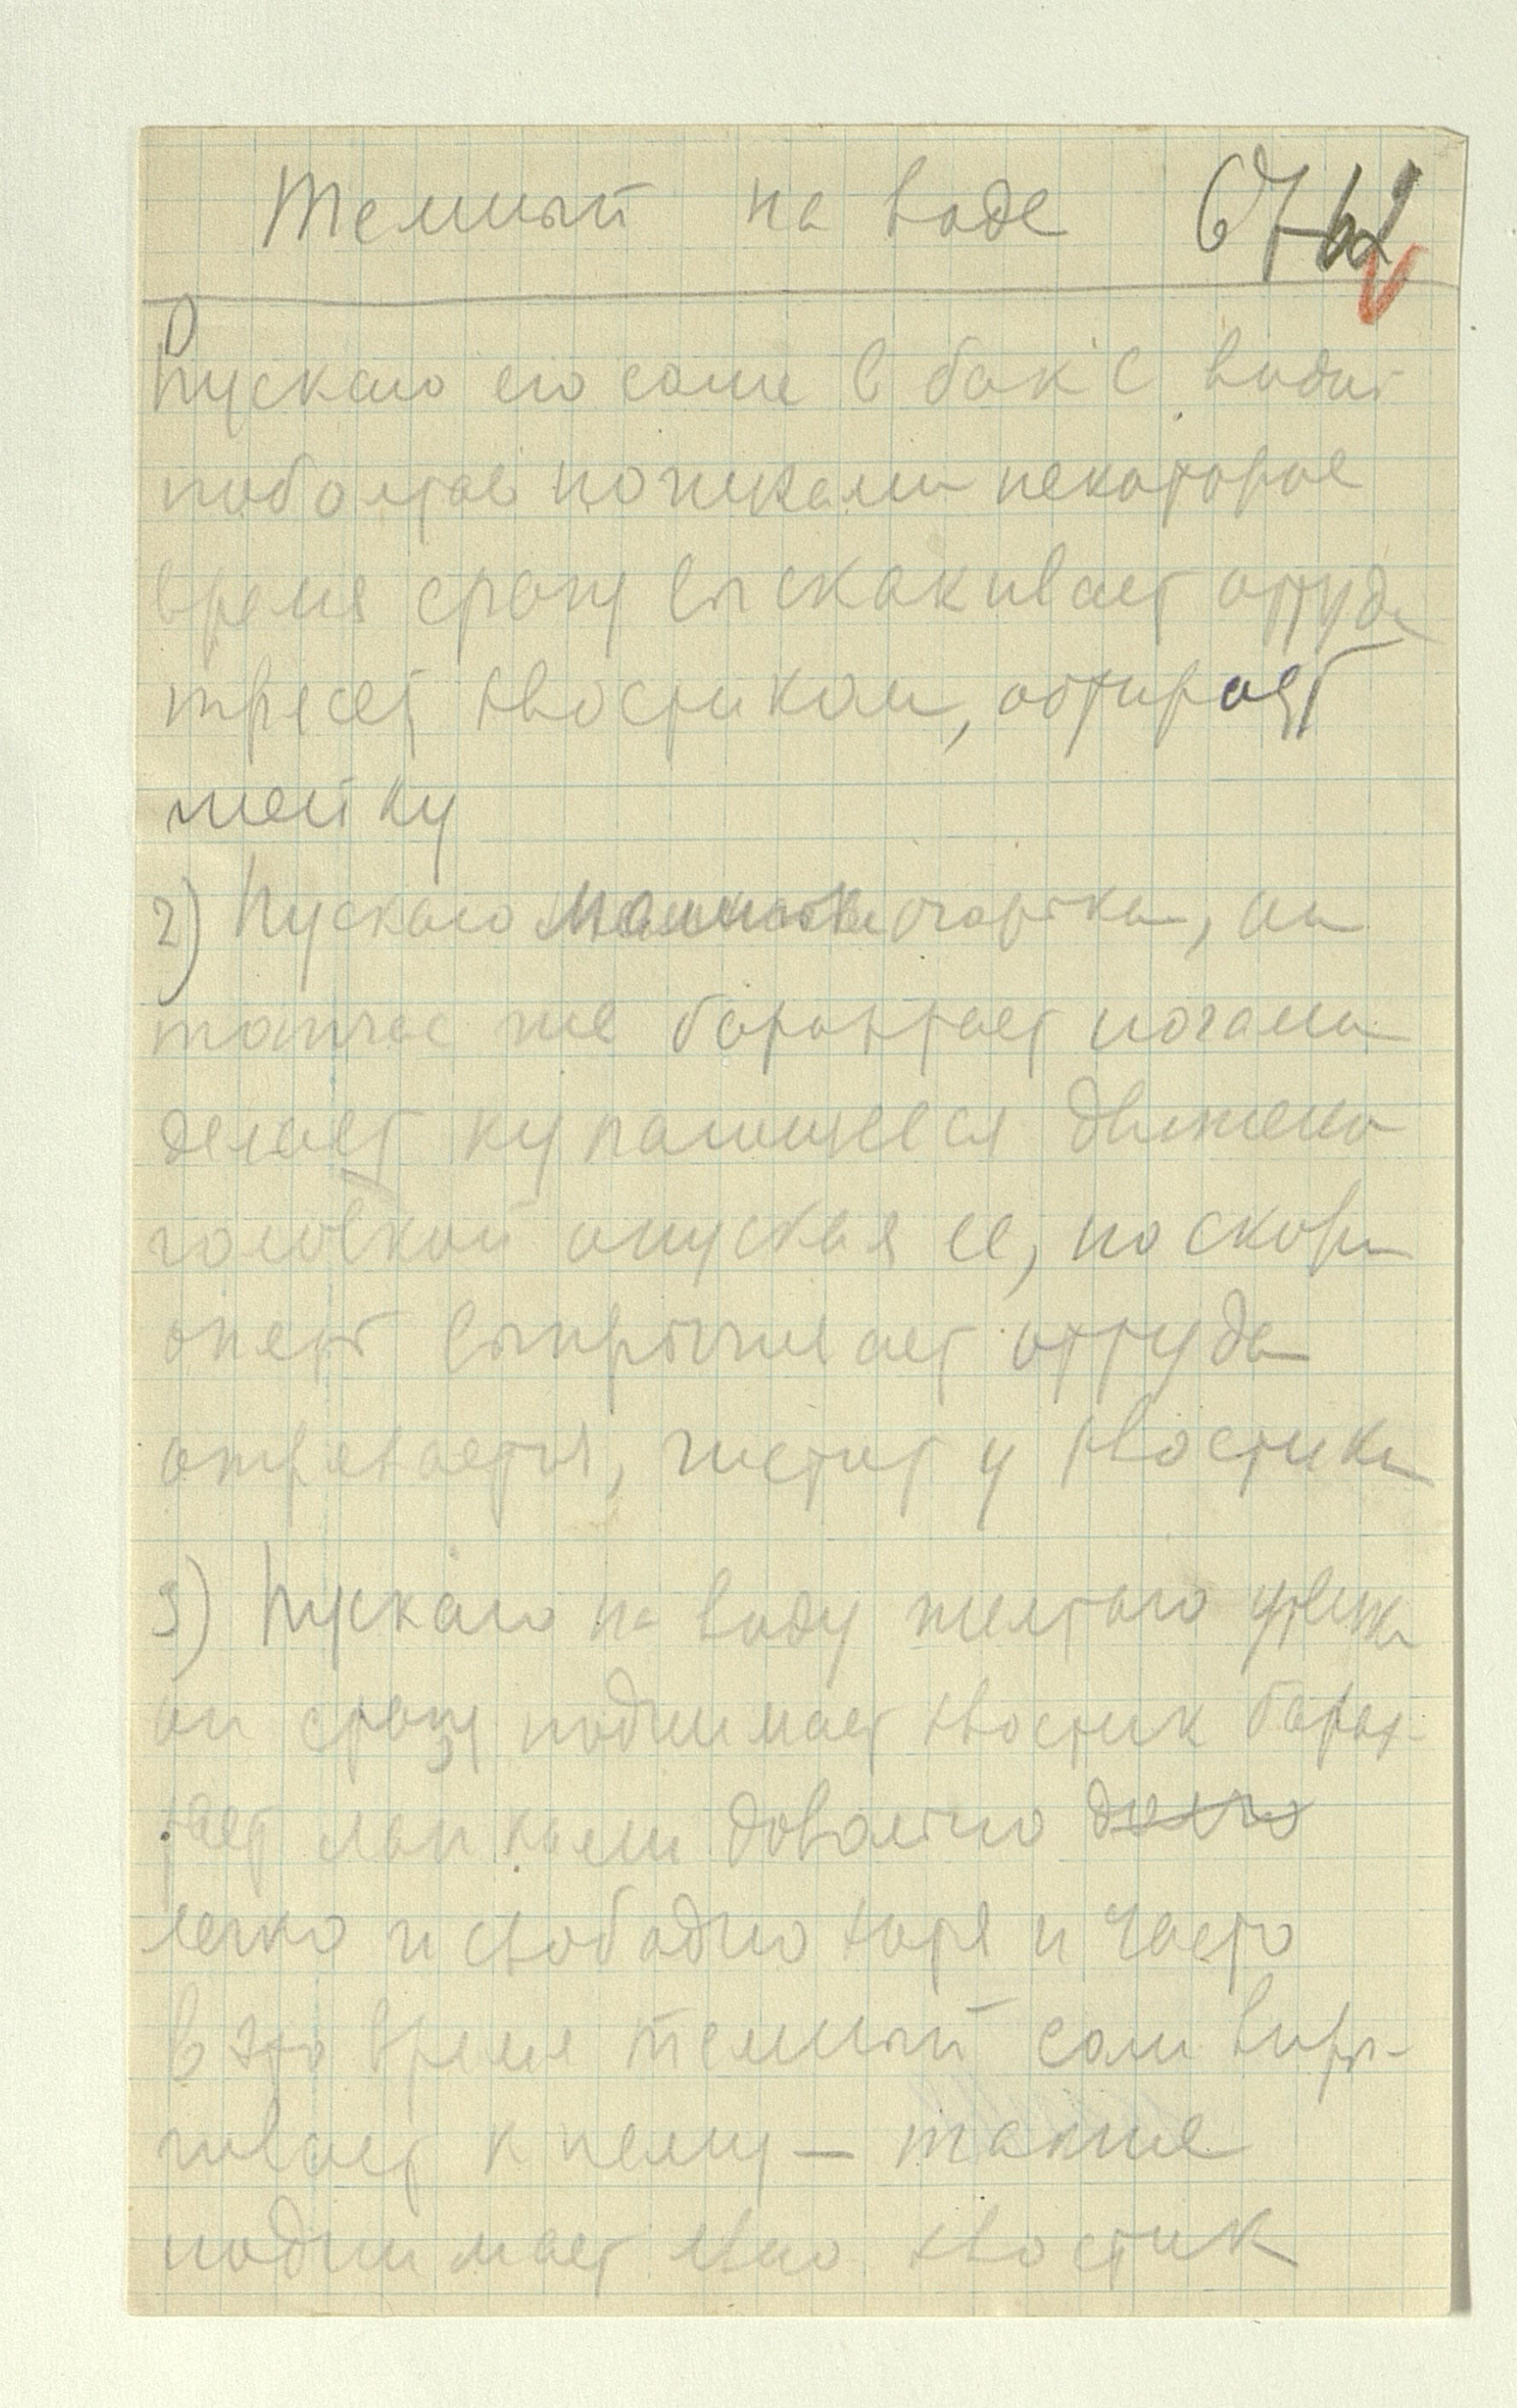 Темный на воде 67
Пускаю его самие в бак с водой
поболтав ножками некоторое
время сразу выскакивает оттуда
трясет хвостиком, отирает
шейку
2) Пускаю, он
тотчас же барахтает ногами
делает купающееся движение
головкой опуская ее, но скоро
опять выпрыгивает оттуда
отряхается, чистит у хвостика
3) Пускаю на воду желтого утенка
он сразу поднимает хвостик барах-
тает лапками довольно
легко и свободно хотя и часто
в это время темный сам впры-
гивает к нему — также
поднимает явно хвостик